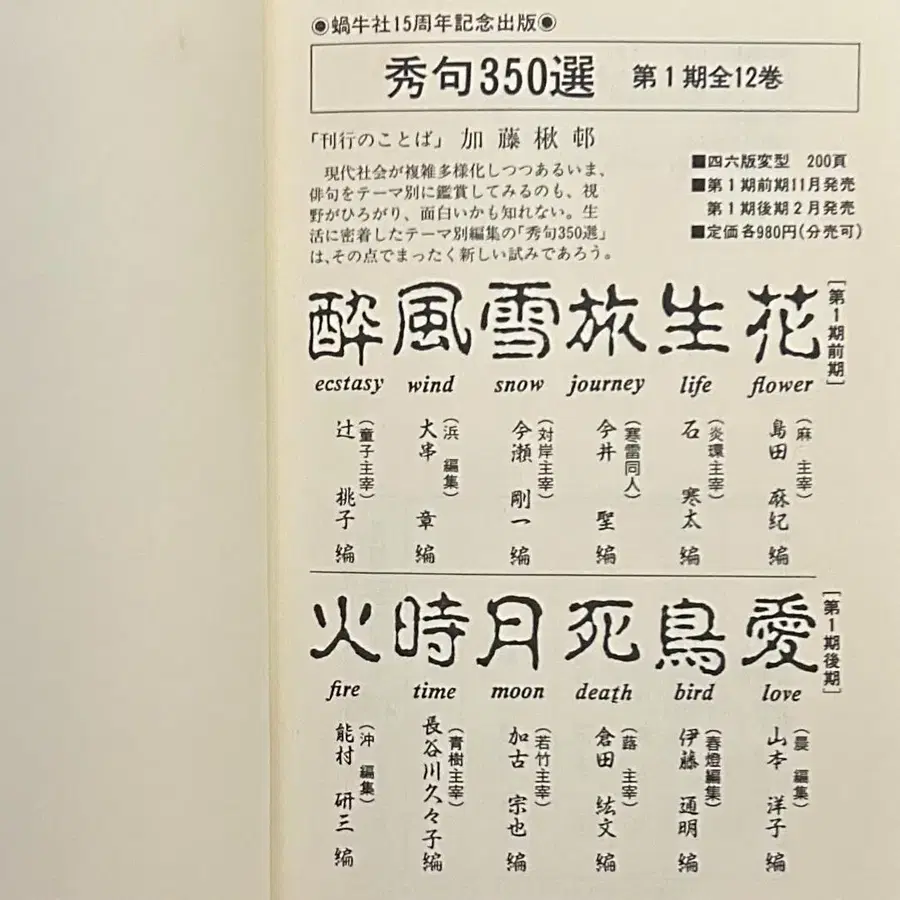 ◉蝸牛社15周年記念出版◉
秀句350選 第1期全12巻
「刊行のことば」加藤楸邨
現代社会が複雑多様化しつつあるいま、
俳句をテーマ別に鑑賞してみるのも、視
野がひろがり、面白いかも知れない。生
活に密着したテーマ別編集の「秀句350選」
は、その点でまったく新しい試みであろう。
■四六版変型 200頁
■第1期前期11月発売
第1期後期2月発売
■定価各980円(分売可)
[第1期前期]
花
flower
(麻 主宰)
島田 麻紀 編
生
life
(炎環主宰)
石 寒太 編
旅
journey
(寒雷同人)
今井 聖 編
雪
snow
(対岸主宰)
今瀬 剛一 編
風
wind
(浜 編集)
大串 章 編
酔
ecstasy
(童子主宰)
辻 桃子 編
[第1期後期]
愛
love
(晨 編集)
山本 洋子 編
鳥
bird
(春燈編集)
伊藤 通明 編
死
death
(蕗 主宰)
倉田 紘文 編
月
moon
(若竹主宰)
加古 宗也 編
時
time
(青樹主宰)
長谷川久々子 編
火
fire
(沖 編集)
能村 研三 編